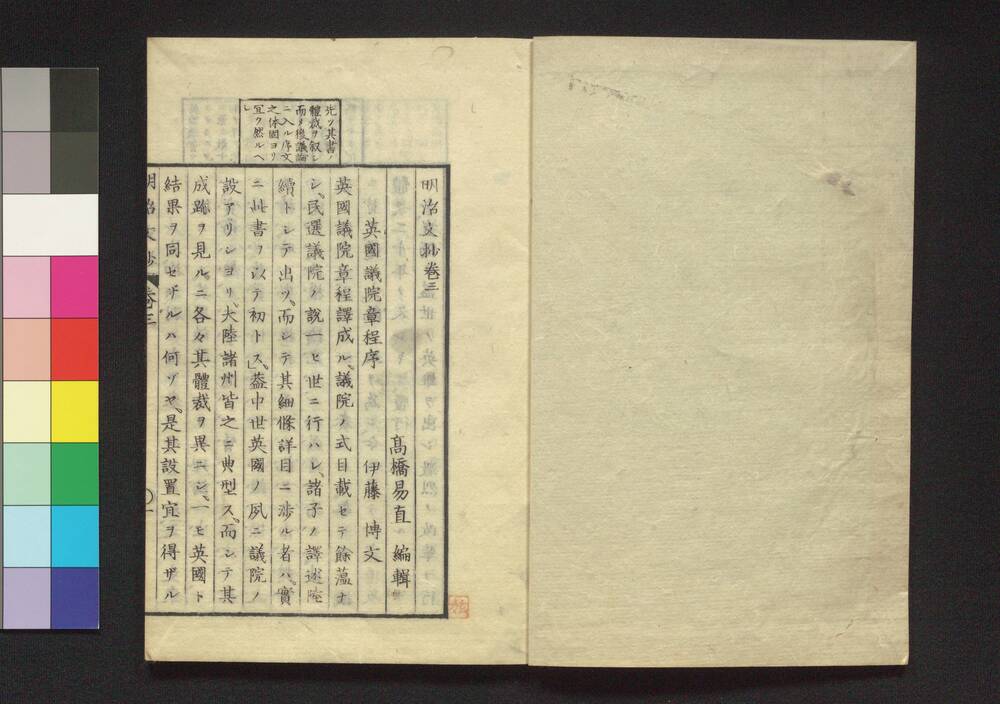 明治文抄卷三
高橋易直 編輯
英國議院章程序 伊藤 博文
英國議院章程譯成ル、議院ノ式目載セテ餘蘊ナ
シ、民選議院ノ說一ヒ世ニ行ハレ、諸子ノ譯述陸
續トシテ出ツ、而シテ其細條詳目ニ涉ル者ハ、實
ニ此書ヲ以テ初トス」、蓋中世英國ノ夙ニ議院ノ
設アリシヨリ、大陸諸州皆之ニ典型ス、而シテ其
成蹟ヲ見ルニ各々其體裁ヲ異ニシ、一モ英國ト
結果ヲ同セザルハ何ゾヤ、是其設置宜ヲ得ザル
先ツ其書ノ
體裁ヲ叙シ
而メ後議論
ニ入ル序文
之体固ヨリ
宜ク然ルヘ
シ
明治文抄 卷三